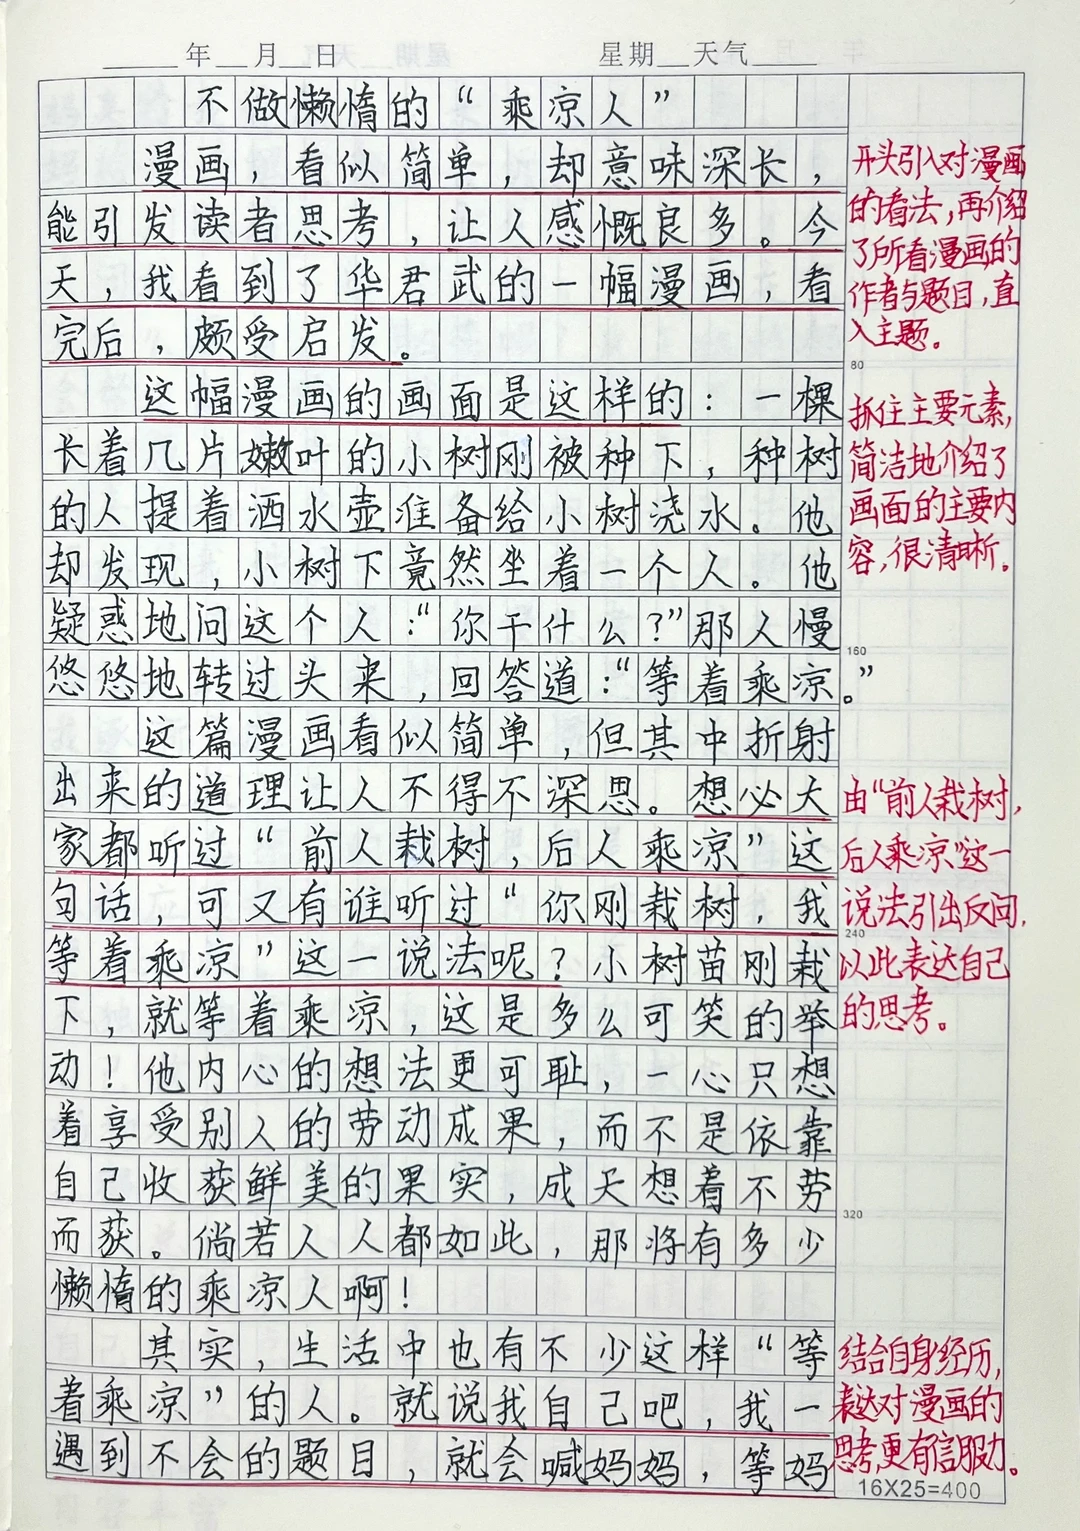 年 月 日 星期 天气
不做懒惰的“乘凉人”
漫画，看似简单，却意味深长，
能引发读者思考，让人感慨良多。今
天，我看到了华君武的一幅漫画，看
完后，颇受启发。
这幅漫画的画面是这样的：一棵
长着几片嫩叶的小树刚被种下，种树
的人提着洒水壶准备给小树浇水。他
却发现，小树下竟然坐着一个人。他
疑惑地问这个人：“你干什么？”那人慢
悠悠地转过头来，回答道：“等着乘凉。”
这篇漫画看似简单，但其中折射
出来的道理让人不得不深思。想必大
家都听过“前人栽树，后人乘凉”这
句话，可又有谁听过“你刚栽树，我
等着乘凉”这一说法呢？小树苗刚栽
下，就等着乘凉，这是多么可笑的举
动！他内心的想法更可耻，一心只想
着享受别人的劳动成果，而不是依靠
自己收获鲜美的果实，成天想着不劳
而获。倘若人人都如此，那将有多少
懒惰的乘凉人啊！
其实，生活中也有不少这样“等
着乘凉”的人。就说我自己吧，我一
遇到不会的题目，就会喊妈妈，等妈
开头引入对漫画
的看法，再介绍
了所看漫画的
作者与题目，直
入主题。
80
抓住主要元素，
简洁地介绍了
画面的主要内
容，很清晰。
160
由“前人栽树，
后人乘凉”这一
说法引出反问，
240
以此表达自己
的思考。
320
结合自身经历，
表达对漫画的
思考，更有信服力。
16X25=400